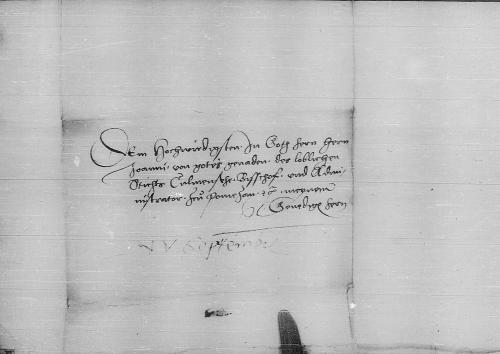 Dem Hochwirdigsten In Goth hern hern
Joanni von gotes genaden des loblichen
Stiffts Culmensche Bisschof und Admi
nistrator zcu Pomezan etc meynem
Gnedigen hern
XV Septembr